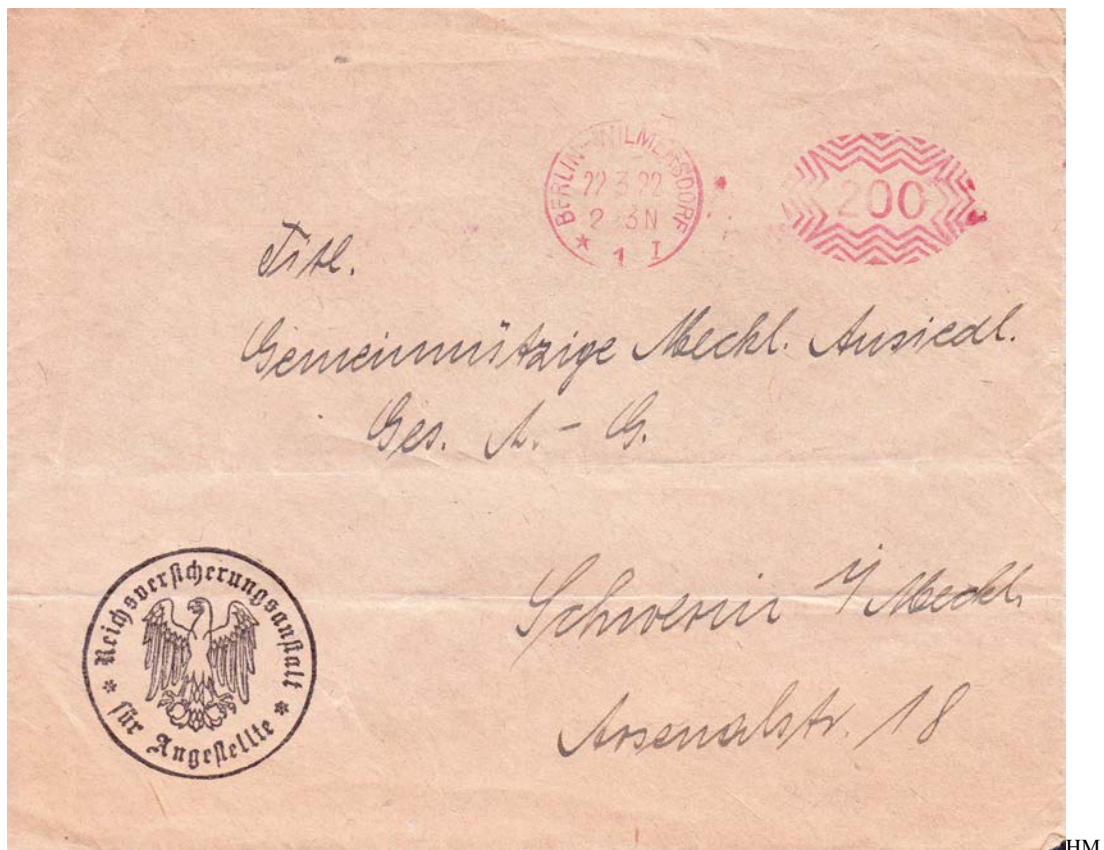 BERLIN-WILMERSDORF
22.3.22
2-3N
* 1 I
200
Titl.
Gemeinnützige Meckl. Ansiedl.
Ges. A.-G.
Schwerin i/Meckl.
Arsenalstr. 18
* Reichsversicherungsanstalt *
für Angestellte
HM